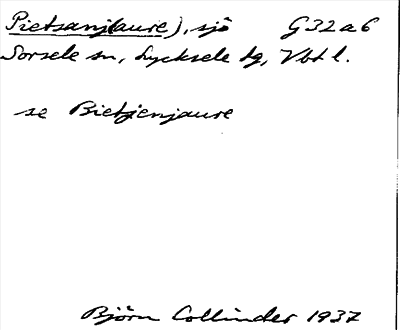 Pietsanj(aure), sjö G32a6
Sorsele sn, Lycksele tg, Vbtl.
se Bietjenjaure
Björn Collinder 1937